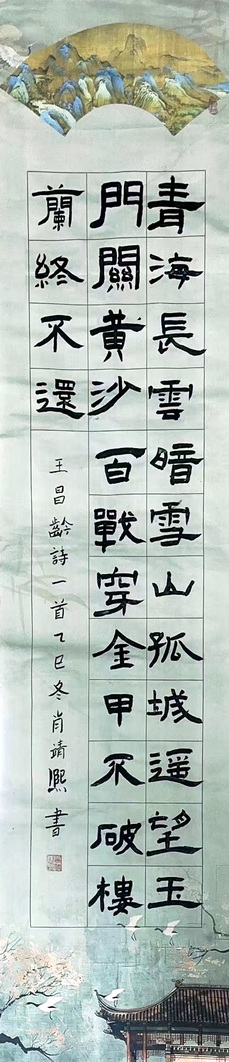 青海長雲暗雪山孤城遥望玉
門關黄沙百戰穿金甲不破樓
蘭終不還
王昌齡詩一首乙巳冬肖靖熙書